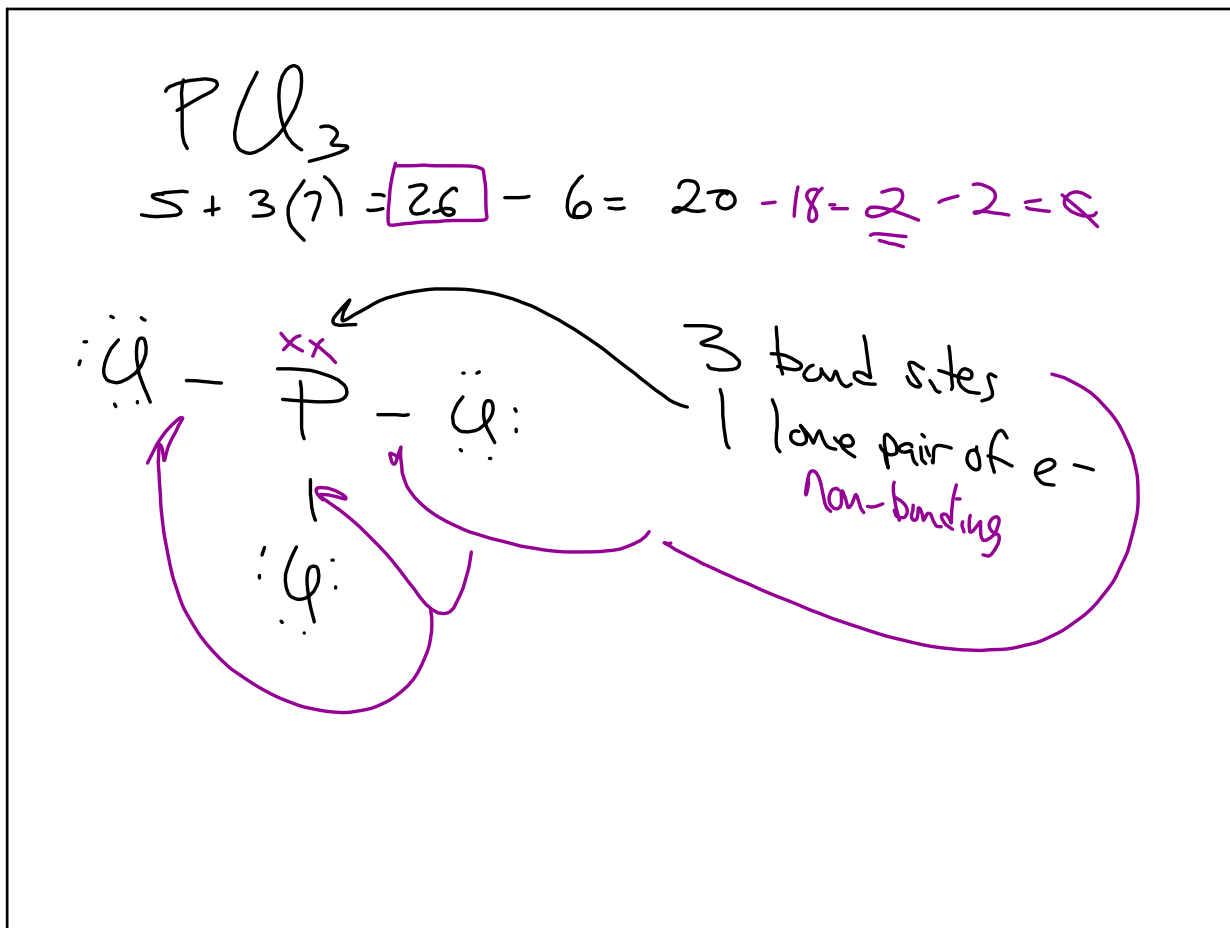 PCl₃
5 + 3(7) = 26 - 6 = 20 - 18 = 2 - 2 = 0
:Cl - P - Cl:
xx
:Cl:
3 bond sites
1 lone pair of e-
non-bonding